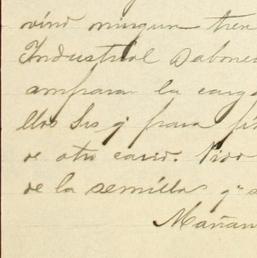 vino ningun tren
Industrial Jabonera
amparar la carga
ellos Srs q para
de otro carro. Pido
de la semilla q s
Mañan